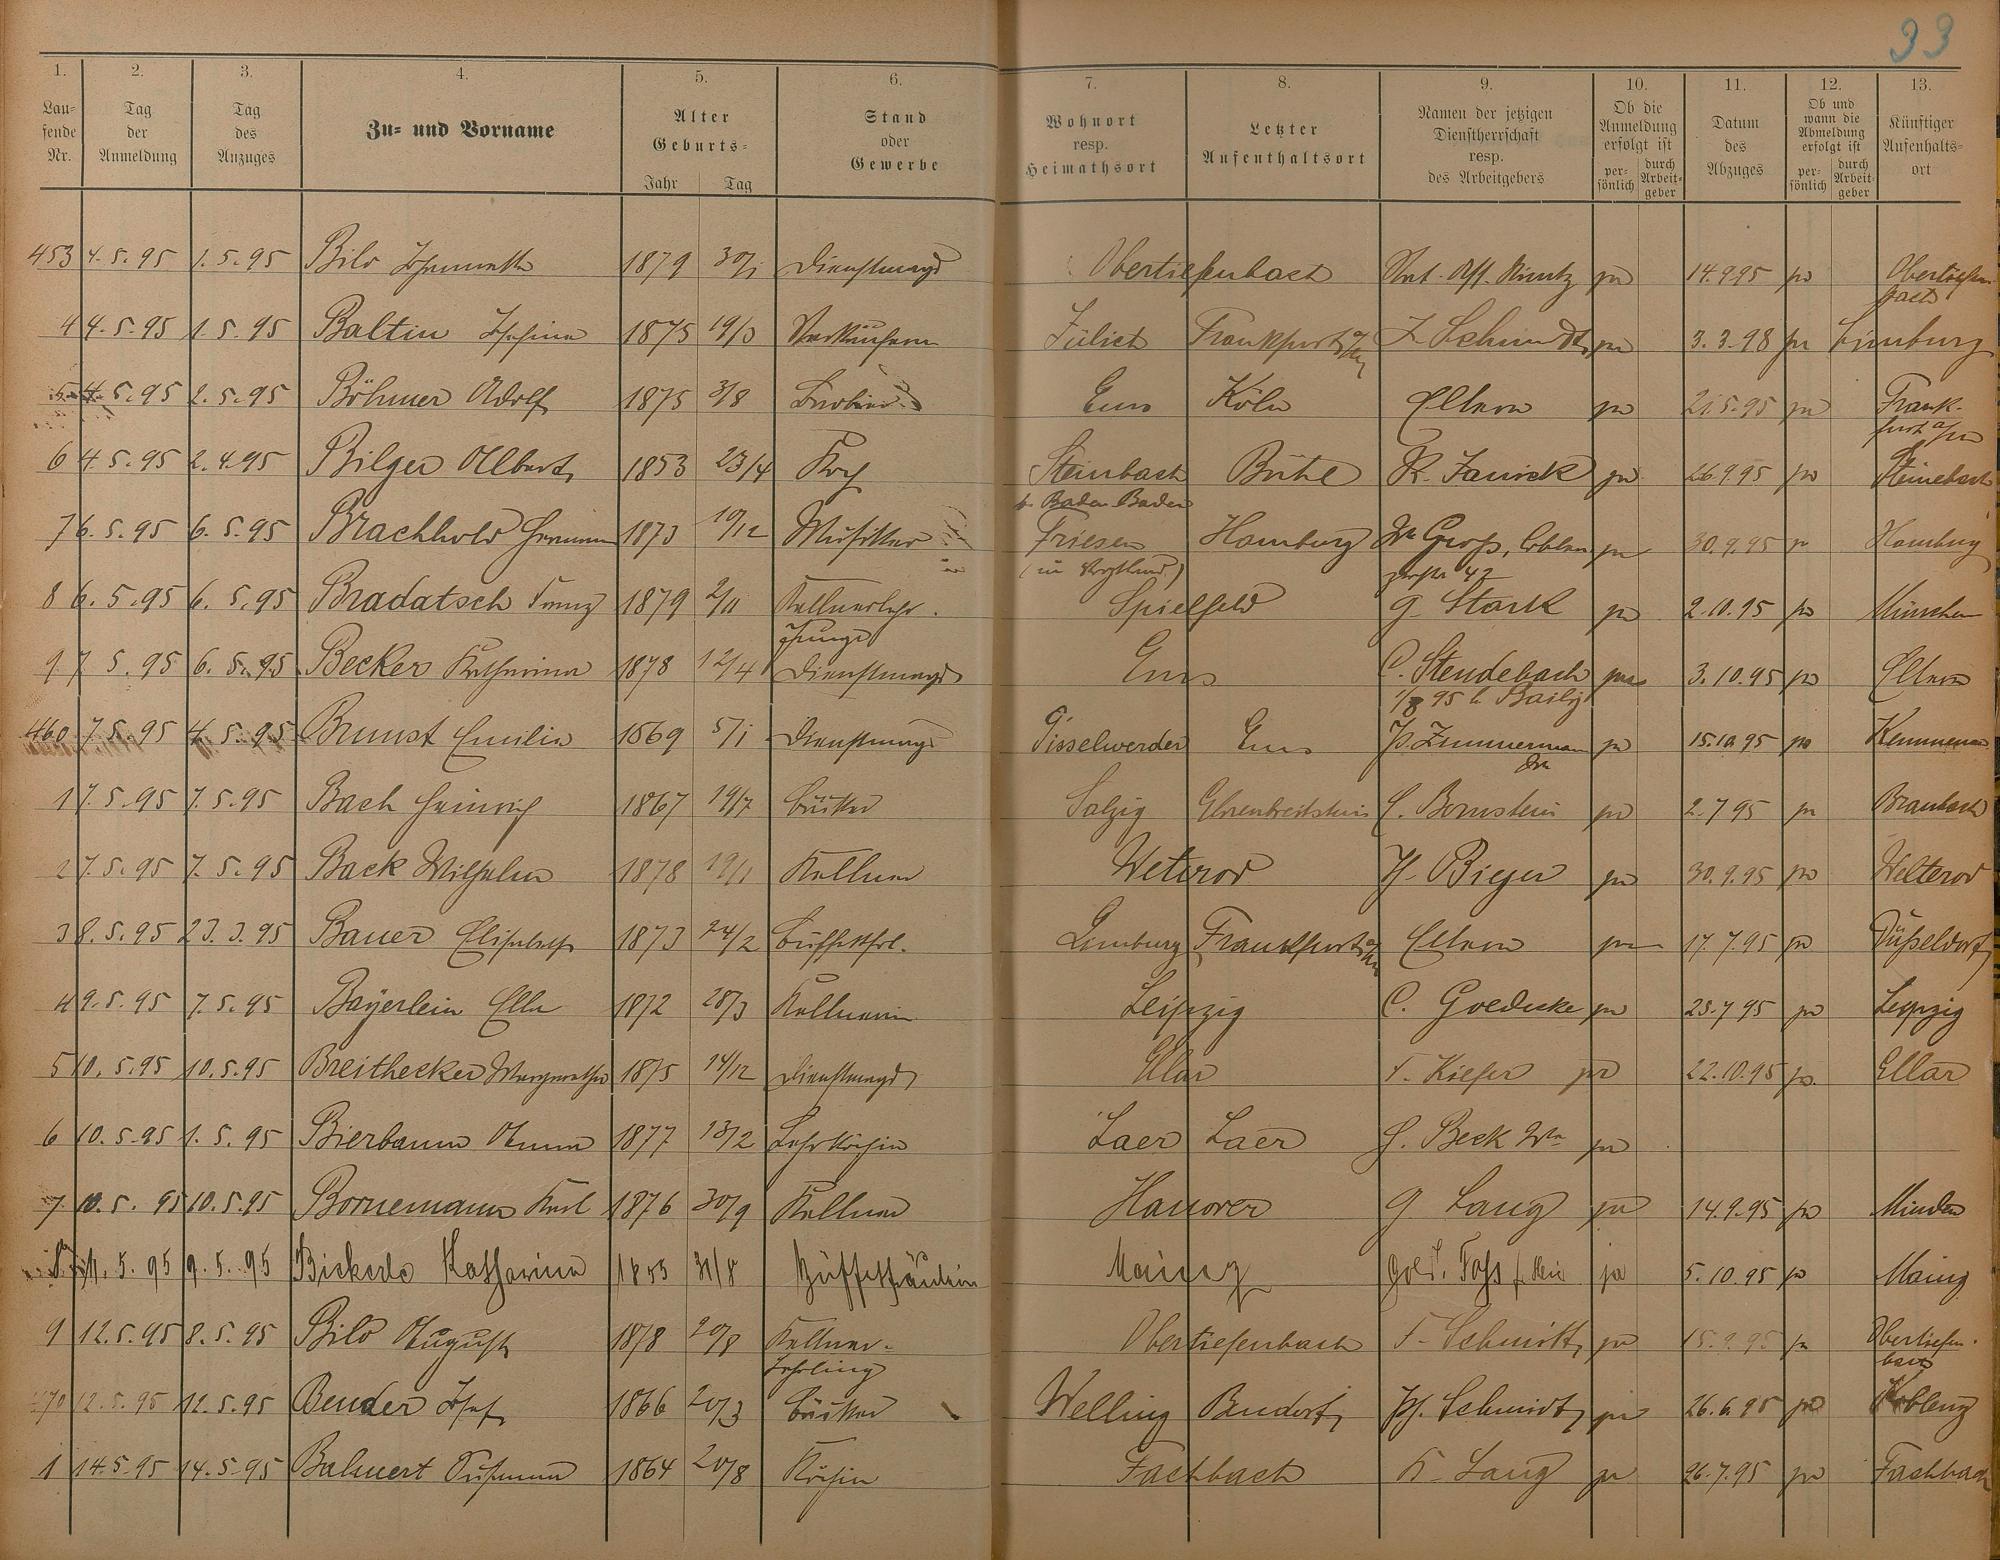 33
1. 2. 3. 4. 5. 6. 7. 8. 9. 10. 11. 12. 13.
Laufende Nr. Tag der Anmeldung Tag des Anzuges Zu- und Vorname Alter Geburts- Jahr Tag Stand oder Gewerbe Wohnort resp. Heimathsort Letzter Aufenthaltsort Namen der jetzigen Dienstherrschaft resp. des Arbeitgebers Ob die Anmeldung erfolgt ist persönlich durch Arbeitgeber Datum des Abzuges Ob und wann die Abmeldung erfolgt ist persönlich durch Arbeitgeber Künftiger Aufenthaltsort
453 4.5.95 1.5.95 Bilo 1879 30/1 Dienstmagd Obertiefenbach 14.9.95 Obertiefenbach
4 4.5.95 1.5.95 Baltin Josefina 1875 19/3 Verkäuferin Jülich Frankfurt a/M J. Schmidt 3.3.98 Limburg
5 4.5.95 2.5.95 Böhmer Adolf 1875 3/8 Ems Köln Eltern 21.5.95 Frankfurt a/M
6 4.5.95 2.4.95 Bilger Albert 1853 23/4 Koch Steinbach b. Baden Baden Bühl R. Janick 26.9.95 Steinebach
7 6.5.95 6.5.95 Brachhold Hermann 1873 10/12 Musiker Friesen (in Vogtland) Homburg 30.9.95 Homburg
8 6.5.95 6.5.95 Bradatsch Franz 1879 2/11 Kellnerlehrjunge Spielfeld G. Stark 2.10.95 München
9 7.5.95 6.5.95 Becker Katharina 1878 12/4 Dienstmagd Ems C. Stendebach 3.10.95 Eltern
1/8 95 b. Bailly
460 7.5.95 4.5.95 Brunst Emilie 1869 5/1 Dienstmagd Gisselwerder Ems P. Zimmermann 15.10.95 Kemmenau
1 7.5.95 7.5.95 Bach Heinrich 1867 19/7 Bäcker Salzig Ehrenbreitstein C. Bernstein 2.7.95 Braubach
2 7.5.95 7.5.95 Back Wilhelm 1878 19/1 Kellner Weterod H. Bieger 30.9.95 Welterod
3 8.5.95 23.3.95 Bauer Elisabeth 1873 24/2 Büffetfrl. Limburg Frankfurt a/M Eltern 17.7.95 Düsseldorf
4 9.5.95 7.5.95 Bayerlein Ella 1872 28/3 Kellnerin Leipzig C. Goedecke 23.7.95 Leipzig
5 10.5.95 10.5.95 Breithecker Margarethe 1875 14/12 Dienstmagd Ellar F. Kiefer 22.10.95 Ellar
6 10.5.95 1.5.95 Bierbaum Anna 1877 13/2 Lehrköchin Laer Laer H. Beck Ww
7 10.5.95 10.5.95 Bornemann Karl 1876 30/9 Kellner Hanover G. Lang 14.9.95 Minden
8 11.5.95 9.5.95 Katharina 1855 31/8 Büffetfräulein Mainz ja 5.10.95 Mainz
9 12.5.95 8.5.95 Bilo August 1878 20/8 Kellner-Lehrling Obertiefenbach F. Schmitt 15.9.95 Obertiefenbach
470 12.5.95 12.5.95 Bender Josef 1866 20/3 Bäcker Welling Bendorf Ph. Schmidt 26.6.95 Koblenz
1 14.5.95 14.5.95 Balmert Susanna 1864 20/8 Köchin Fachbach K. Lang 26.7.95 Fachbach